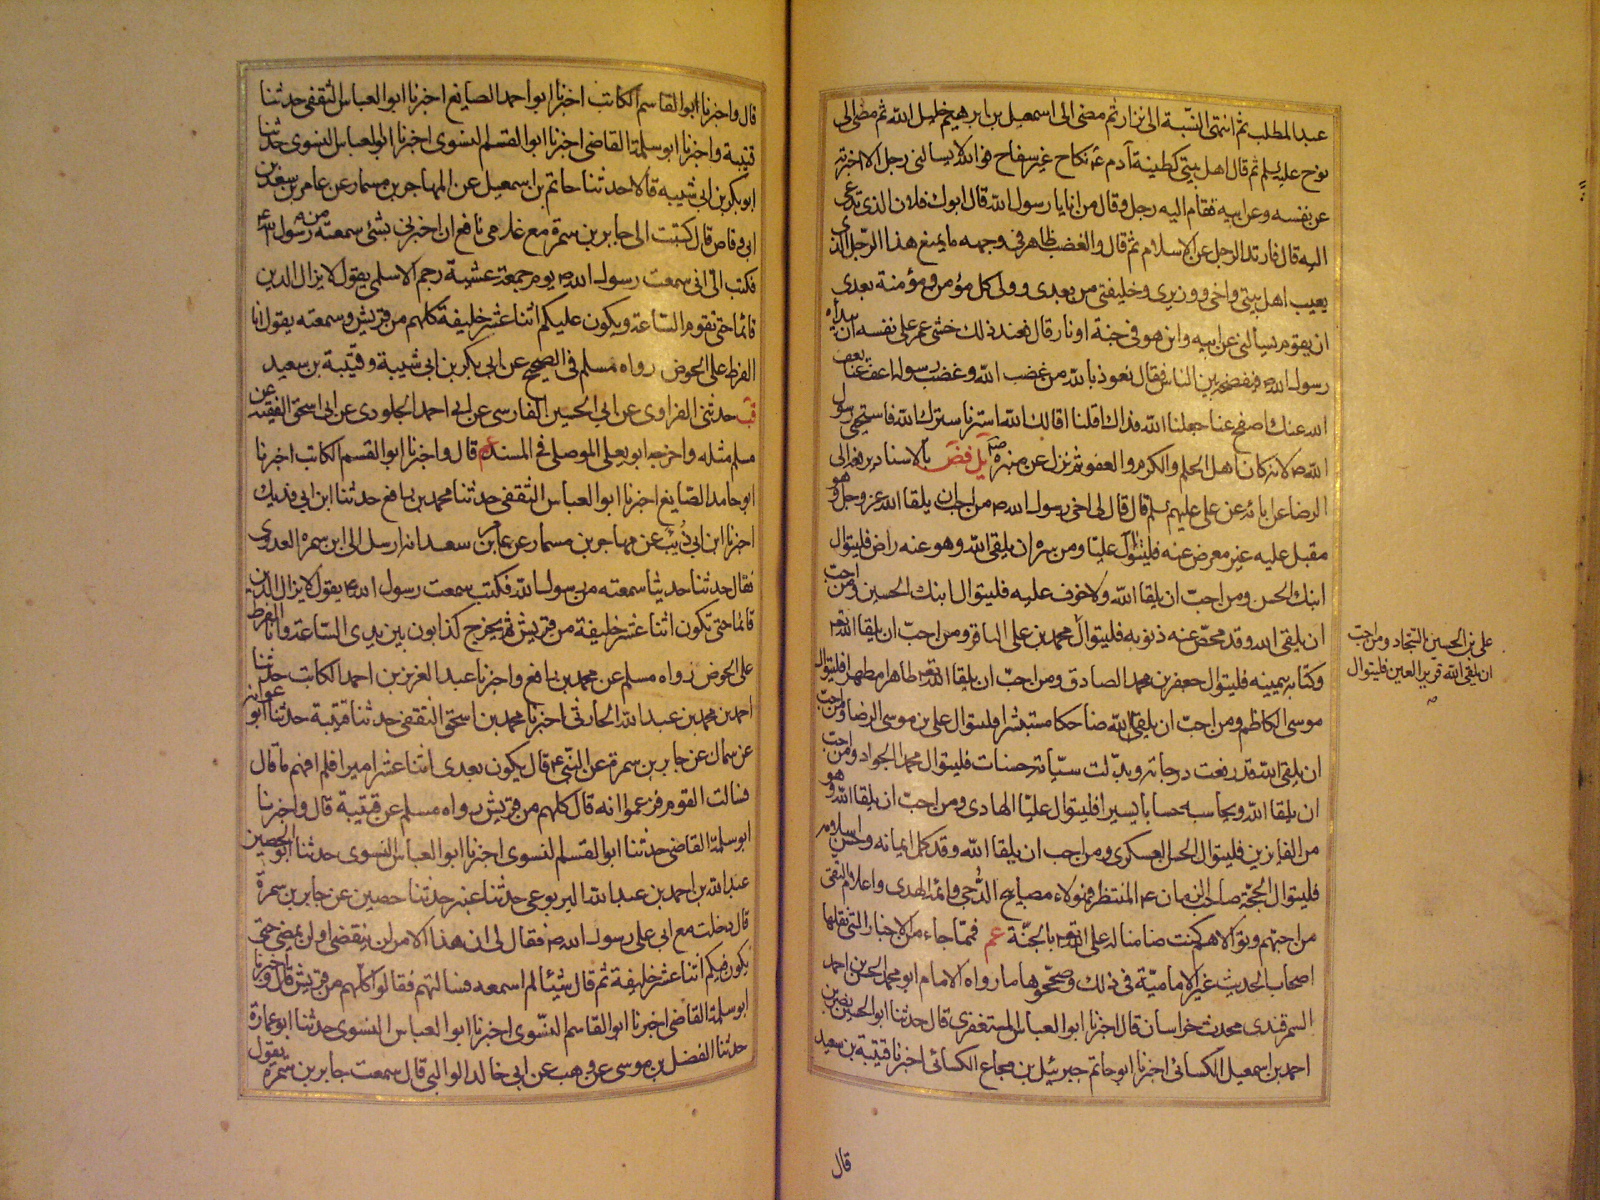 عبد المطلب ثم انتهى النسبة الى نزار ثم مضى الى اسمعيل بن ابرهيم خليل الله ثم مضى الى
نوح عليه السلم ثم قال اهل بيتى كطينة آدم ع نكاح غير سفاح فوالله لا يسالنى رجل الا اخبرته
عن نفسه وعن ابيه فقام اليه رجل وقال من انا يا رسول الله قال ابوك فلان الذى تدعى
اليه قال فارتد الرجل عن الاسلام ثم قال والغضب ظاهر فى وجهه ما يمنع هذا الرجل الذى
يعيب اهل بيتى واخى ووزيرى وخليفتى من بعدى وولى كل مؤمن ومؤمنة بعدى
ان يقوم يسألنى عن ابيه واين هو فى جنة او نار قال فعند ذلك خشى عمر على نفسه ان يبداه
رسول الله ص فيفضحه بين الناس فقال نعوذ بالله من غضب الله وغضب رسوله اعف عنا يعف
الله عنك اصفح عنا جعلنا الله فداك اقلنا اقالك الله استرنا سترك الله فاستحيى رسول
الله ص لانه كان اهل الحلم والكرم والعفو ثم نزل عن منبره ص يل فض بالاسناد يرفعه الى
الرضا عن آبائه عن على عليهم السلم قال قال لى اخى رسول الله ص من احب ان يلقا الله عز وجل وهو
مقبل عليه غير معرض عنه فليتوال عليا ومن سره ان يلقى الله وهو عنه راض فليتوال
ابنك الحسن ومن احب ان يلقا الله ولا خوف عليه فليتوال ابنك الحسين ومن احب
ان يلقى الله وقد محص عنه ذنوبه فليتوال محمد بن على الباقر ومن احب ان يلقا الله تع
وكتابه بيمينه فليتوال جعفر بن محمد الصادق ومن احب ان يلقا الله تع طاهرا مطهرا فليتوال
موسى الكاظم ومن احب ان يلقى الله ضاحكا مستبشرا فليتوال على بن موسى الرضا ومن احب
ان يلقى الله قد رفعت درجاته وبدلت سيئاته حسنات فليتوال محمد الجواد ومن احب
ان يلقا الله ويحاسبه حسابا يسيرا فليتوال عليا الهادى ومن احب ان يلقا الله وهو
من الفايزين فليتوال الحسن العسكرى ومن احب ان يلقا الله وقد كمل ايمانه وحسن اسلامه
فليتوال الحجة صاحب الزمان ع المنتظر فهؤلاء مصابيح الدجى وائمة الهدى واعلام التقى
من احبهم وتوالاهم كنت ضامنا له على الله تع بالجنة عم فمما جاء من الاخبار التى نقلها
اصحاب الحديث غير الامامية فى ذلك وصححوها ما رواه الامام ابو محمد الحسن بن احمد
السمرقندى محدث خراسان قال اخبرنا ابو العباس المستغفرى قال حدثنا ابو الحسين نصر بن
احمد بن اسمعيل الكسائى اخبرنا ابو حاتم جبرئيل بن مجاع الكسائى اخبرنا قتيبة بن سعيد
قال
على بن الحسين السجاد ومن احب
ان يلقى الله قرير العين فليتوال
قال واخبرنا ابو القاسم الكاتب اخبرنا ابو احمد الصايغ اخبرنا ابو العباس الثقفى حدثنا
قتيبة واخبرنا ابو سلمة القاضى اخبرنا ابو القسم النسوى اخبرنا ابو العباس النسوى حدثنا
ابو بكر بن ابى شيبه قالا حدثنا حاتم بن اسمعيل عن المهاجر بن مسمار عن عامر بن سعد بن
ابى وقاص قال كتبت الى جابر بن سمرة مع غلامى نافع ان اخبرنى بشئ سمعته من رسول الله ص
فكتب الى انى سمعت رسول الله ص يوم جمعة عشية رجم الاسلمى يقول لا يزال الدين
قائما حتى تقوم الساعة ويكون عليكم اثنا عشر خليفة كلهم من قريش وسمعته يقول انا
الفرط على الحوض رواه مسلم فى الصحيح عن ابى بكر بن ابى شيبة وقتيبة بن سعيد
قب حدثنى الفراوى عن ابى الحسين الفارسى عن ابى احمد الجلودى عن ابى اسحق الفقيه عن
مسلم مثله واخرجه ابو يعلى الموصلى فى المسند عم قال واخبرنا ابو القسم الكاتب اخبرنا
ابو حامد الصايغ اخبرنا ابو العباس الثقفى حدثنا محمد بن رافع حدثنا ابن ابى فديك
اخبرنا ابن ابى ذئب عن مهاجر بن مسمار عن عامر بن سعد انه ارسل الى ابن سمره العدوى
فقال حدثنا حديثا سمعته من رسول الله فكتب سمعت رسول الله ص يقول لا يزال الدين
قائما حتى تكون اثنا عشر خليفة من قريش ثم يخرج كذابون بين يدى الساعة وانا الفرط
على الحوض رواه مسلم عن محمد بن رافع واخبرنا عبد العزيز بن احمد الكاتب حدثنا
احمد بن محمد بن عبد الله الحارثى اخبرنا محمد بن اسحق الثقفى حدثنا قتيبة حدثنا ابو عوانة
عن سماك عن جابر بن سمرة عن النبى ص قال يكون بعدى اثنا عشر اميرا فلم افهم ما قال
فسالت القوم فزعموا انه قال كلهم من قريش رواه مسلم عن قتيبة قال واخبرنا
ابو سلمة القاضى حدثنا ابو القسم النسوى اخبرنا ابو العباس النسوى حدثنا ابو الحصين
عبد الله بن احمد بن عبد الله اليربوعى حدثنا عبثر حدثنا حصين عن جابر بن سمرة
قال دخلت مع ابى على رسول الله ص فقال لى ان هذا الامر لن ينقضى او لن يمضى حتى
يكون فيكم اثنا عشر خليفة ثم قال شيئا لم اسمعه فسالتهم فقالوا كلهم من قريش قال واخبرنا
ابو سلمة القاضى اخبرنا ابو القاسم النسوى اخبرنا ابو العباس النسوى حدثنا ابو عمارة
حدثنا الفضل بن موسى عن وهب عن ابى خالد الوالبى قال سمعت جابر بن سمرة يقول